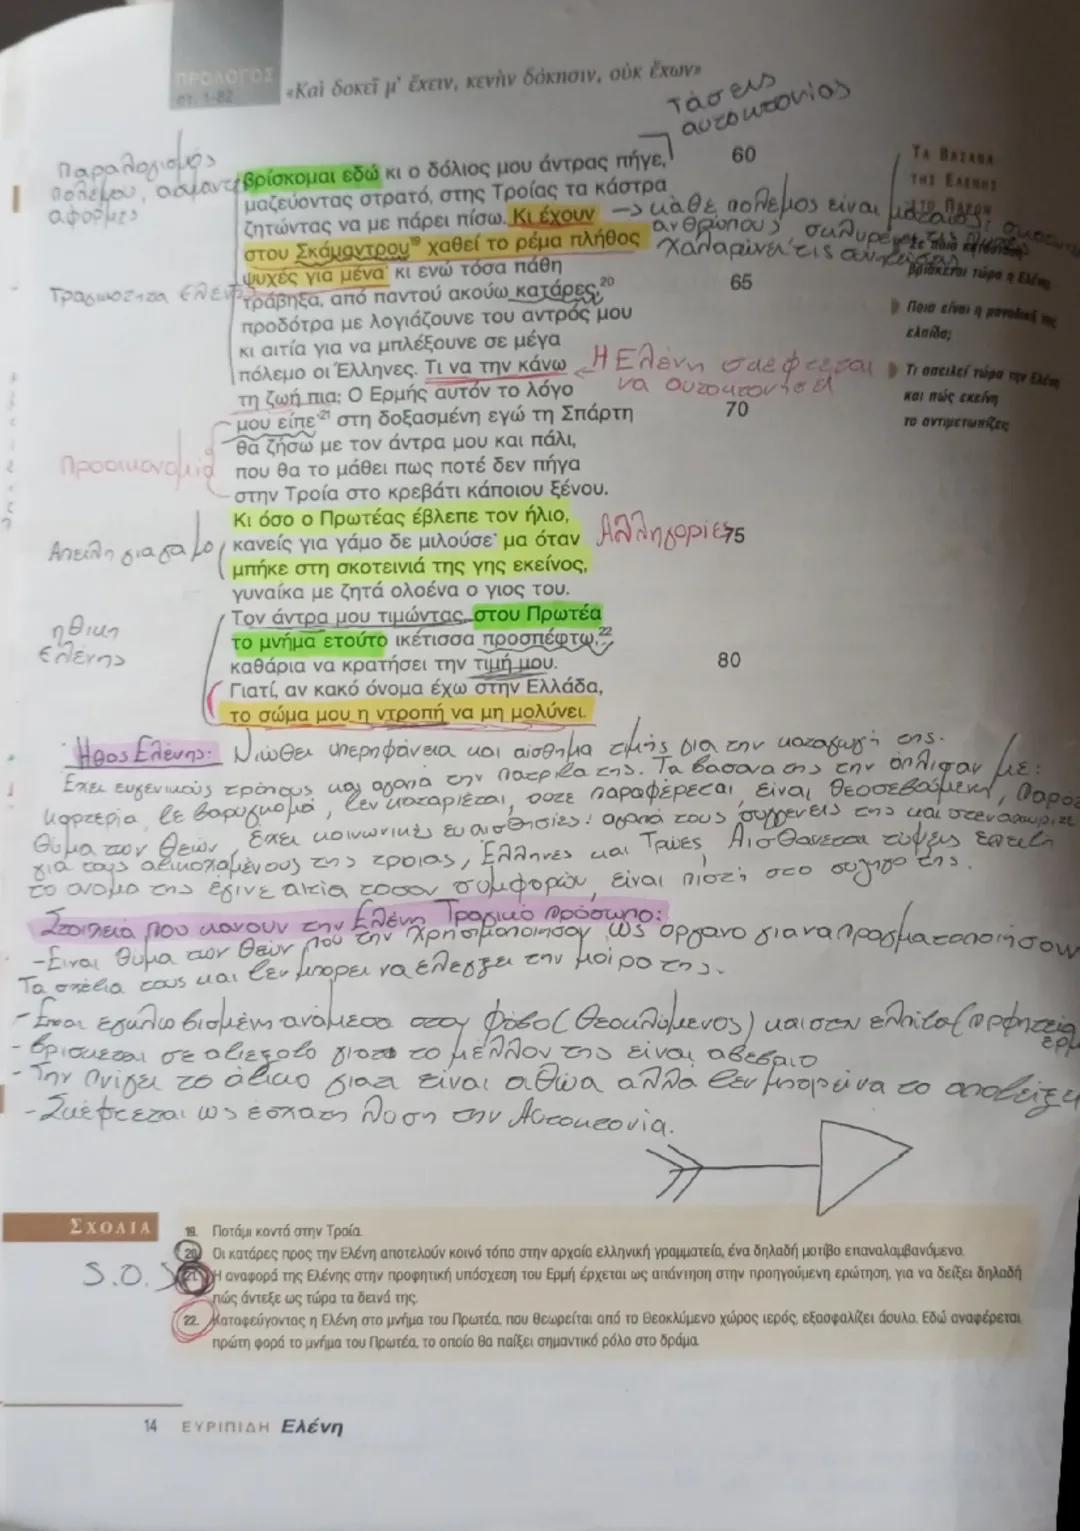 ΠΡΟΛΟΓΟΣ
στ. 1-82
«Καὶ δοκεῖ μ' ἔχειν, κενὴν δόκησιν, οὐκ ἔχων»
Τάσεις
αυτοκτονίας
Παραλογισμός
πολέμου, ασήμαντες
αφορμές
βρίσκομαι εδώ κι ο δόλιος μου άντρας πήγε,
60
μαζεύοντας στρατό, στης Τροίας τα κάστρα
ζητώντας να με πάρει πίσω. Κι έχουν
στου Σκάμαντρου¹⁹ χαθεί το ρέμα πλήθος
ψυχές για μένα· κι ενώ τόσα πάθη
τράβηξα, από παντού ακούω κατάρες,²⁰
65
προδότρα με λογιάζουνε του αντρός μου
κι αιτία για να μπλέξουνε σε μέγα
πόλεμο οι Έλληνες. Τι να την κάνω
τη ζωή πια; Ο Ερμής αυτόν το λόγο
μου είπε²¹ στη δοξασμένη εγώ τη Σπάρτη
70
θα ζήσω με τον άντρα μου και πάλι,
που θα το μάθει πως ποτέ δεν πήγα
στην Τροία στο κρεβάτι κάποιου ξένου.
Κι όσο ο Πρωτέας έβλεπε τον ήλιο,
κανείς για γάμο δε μιλούσε· μα όταν
75
μπήκε στη σκοτεινιά της γης εκείνος,
γυναίκα με ζητά ολοένα ο γιος του.
Τον άντρα μου τιμώντας, στου Πρωτέα
το μνήμα ετούτο ικέτισσα προσπέφτω,²²
καθάρια να κρατήσει την τιμή μου.
80
Γιατί, αν κακό όνομα έχω στην Ελλάδα,
το σώμα μου η ντροπή να μη μολύνει.
→ κάθε πόλεμος είναι μάταιος: σκοτώνει
ανθρώπους σκληραίνει τις ψυχές
χαλαρώνει τις συνειδήσεις
Τραγικότητα Ελένης
Η Ελένη σκέφτεται
να αυτοκτονήσει
Προοικονομία
Αλληγορίες
Απειλή για γάμο
ηθική
Ελένης
ΤΑ ΒΑΣΑΝΑ
ΤΗΣ ΕΛΕΝΗΣ
ΣΤΟ ΠΑΡΟΝ
Σε ποια κατάσταση
βρίσκεται τώρα η Ελένη;
Ποια είναι η μοναδική της
ελπίδα;
Τι απειλεί τώρα την Ελένη
και πώς εκείνη
το αντιμετωπίζει;
Ήθος Ελένης: Νιώθει υπερηφάνεια και αίσθημα τιμής για την καταγωγή της.
Έχει ευγενικούς τρόπους και αγαπά την πατρίδα της. Τα βάσανα της την όπλισαν με:
καρτερία, δε βαρυγκομά, δεν καταριέται, ούτε παραφέρεται, είναι θεοσεβούμενη, παρόλο
θύμα των θεών, έχει κοινωνικές ευαισθησίες: αγαπά τους συγγενείς της και στεναχωριέται
για τους αδικοχαμένους της Τροίας, Έλληνες και Τρώες. Αισθάνεται τύψεις επειδή
το όνομα της έγινε αιτία τόσων συμφορών, είναι πιστή στο σύζυγο της.
Στοιχεία που κάνουν την Ελένη Τραγικό πρόσωπο:
-Είναι θύμα των θεών που την χρησιμοποίησαν ως όργανο για να πραγματοποιήσουν
Τα σχέδια τους και δεν μπορεί να ελέγξει την μοίρα της.
- Είναι εγκλωβισμένη ανάμεσα στον φόβο (Θεοκλύμενος) και στην ελπίδα (προφητεία
Ερμή
- Βρίσκεται σε αδιέξοδο γιατί το μέλλον της είναι αβέβαιο
- Την πνίγει το άδικο γιατί είναι αθώα αλλά δεν μπορεί να το αποδείξει
- Σκέφτεται ως έσχατη λύση την Αυτοκτονία.
ΣΧΟΛΙΑ
S.O.S
19. Ποτάμι κοντά στην Τροία.
20. Οι κατάρες προς την Ελένη αποτελούν κοινό τόπο στην αρχαία ελληνική γραμματεία, ένα δηλαδή μοτίβο επαναλαμβανόμενο.
21. Η αναφορά της Ελένης στην προφητική υπόσχεση του Ερμή έρχεται ως απάντηση στην προηγούμενη ερώτηση, για να δείξει δηλαδή
πώς άντεξε ως τώρα τα δεινά της.
22. Καταφεύγοντας η Ελένη στο μνήμα του Πρωτέα, που θεωρείται από το Θεοκλύμενο χώρος ιερός, εξασφαλίζει άσυλο. Εδώ αναφέρεται
πρώτη φορά το μνήμα του Πρωτέα, το οποίο θα παίξει σημαντικό ρόλο στο δράμα.
14 ΕΥΡΙΠΙΔΗ Ελένη